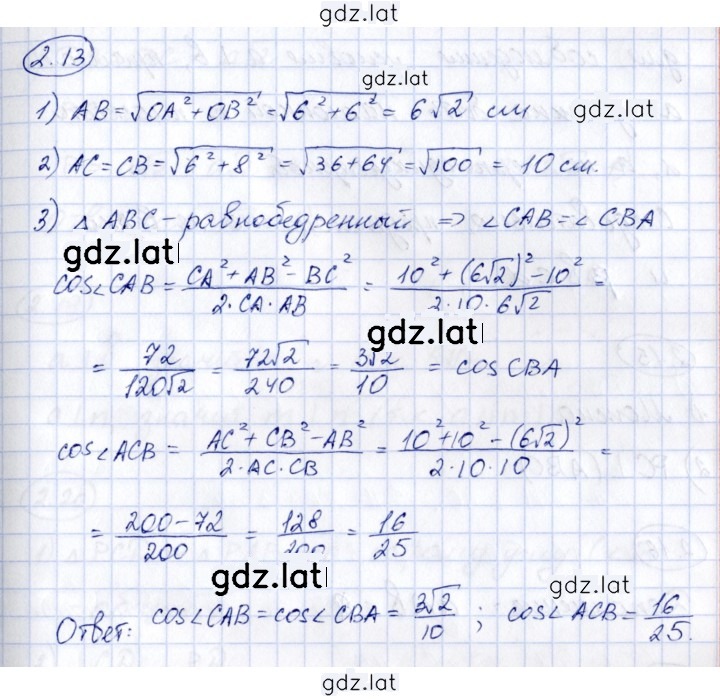 gdz.latl
2.13
gdz.latl
1) AB = √(OA² + OB²) = √(6² + 6²) = 6√2 см
2) AC = CB = √(6² + 8²) = √(36 + 64) = √100 = 10 см.
3) △ ABC – равнобедренный ⇒ ∠CAB = ∠CBA
gdz.latl
cos∠CAB = (CA² + AB² – BC²)/(2·CA·AB) = (10² + (6√2)² – 10²)/(2·10·6√2) =
gdz.latl
= 72/(120√2) = 72√2/240 = 3√2/10 = cos CBA
cos∠ACB = (AC² + CB² – AB²)/(2·AC·CB) = (10² + 10² – (6√2)²)/(2·10·10) =
= (200 – 72)/200 = 128/200 = 16/25
gdz.latl
gdz.latl
Ответ: cos∠CAB = cos∠CBA = 3√2/10 ; cos∠ACB = 16/25.
gdz.latl